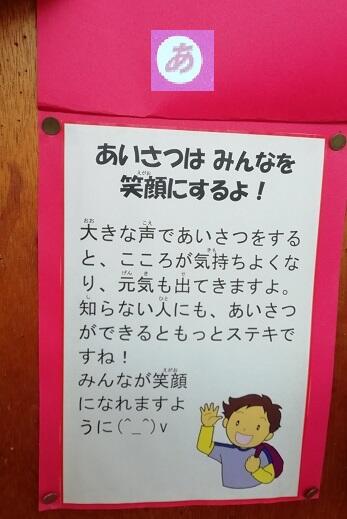 あ
あいさつは みんなを
笑顔にするよ！
大きな声であいさつをする
と、こころが気持ちよくな
り、元気も出てきますよ。
知らない人にも、あいさつ
ができるともっとステキで
すね！
みんなが笑顔
になれますよ
うに(^_^)v